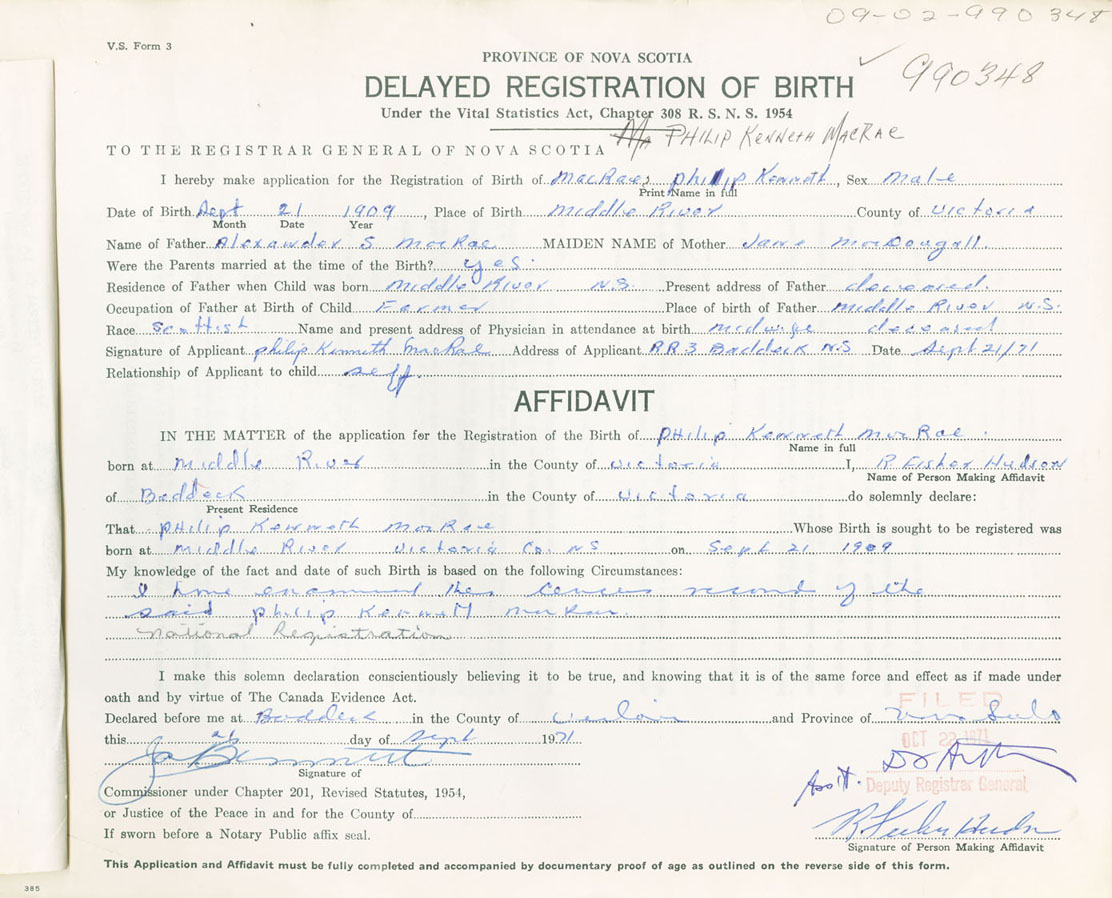 09-02-990348
V.S. Form 3
PROVINCE OF NOVA SCOTIA
990348
DELAYED REGISTRATION OF BIRTH
Under the Vital Statistics Act, Chapter 308 R. S. N. S. 1954
PHILIP KENNETH MACRAE
TO THE REGISTRAR GENERAL OF NOVA SCOTIA
I hereby make application for the Registration of Birth of MacRae, Philip Kenneth, Sex Male
Print Name in full
Date of Birth Sept 21 1909, Place of Birth Middle River County of Victoria
Month Date Year
Name of Father Alexander S MacRae MAIDEN NAME of Mother Jane MacDougall.
Were the Parents married at the time of the Birth? yes.
Residence of Father when Child was born Middle River N.S. Present address of Father deceased.
Occupation of Father at Birth of Child Farmer Place of birth of Father Middle River N.S.
Race Scottish Name and present address of Physician in attendance at birth midwife deceased
Signature of Applicant Philip Kenneth MacRae Address of Applicant R.R.3 Baddeck N.S Date Sept 21/71
Relationship of Applicant to child self.
AFFIDAVIT
IN THE MATTER of the application for the Registration of the Birth of Philip Kenneth MacRae.
Name in full
born at Middle River in the County of Victoria I, R. Fisher Hudson
Name of Person Making Affidavit
of Baddeck in the County of Victoria do solemnly declare:
Present Residence
That Philip Kenneth MacRae Whose Birth is sought to be registered was
born at Middle River Victoria Co. NS on Sept 21 1909
My knowledge of the fact and date of such Birth is based on the following Circumstances:
I have examined the census record of the
said Philip Kenneth MacRae.
National Registration
I make this solemn declaration conscientiously believing it to be true, and knowing that it is of the same force and effect as if made under
oath and by virtue of The Canada Evidence Act.
FILED
Declared before me at Baddeck in the County of Victoria and Province of Nova Scotia
this day of Sept 1971
OCT 22 1971
Signature of
Ass't. Deputy Registrar General
Commissioner under Chapter 201, Revised Statutes, 1954,
or Justice of the Peace in and for the County of
R Fisher Hudson
If sworn before a Notary Public affix seal.
Signature of Person Making Affidavit
This Application and Affidavit must be fully completed and accompanied by documentary proof of age as outlined on the reverse side of this form.
385